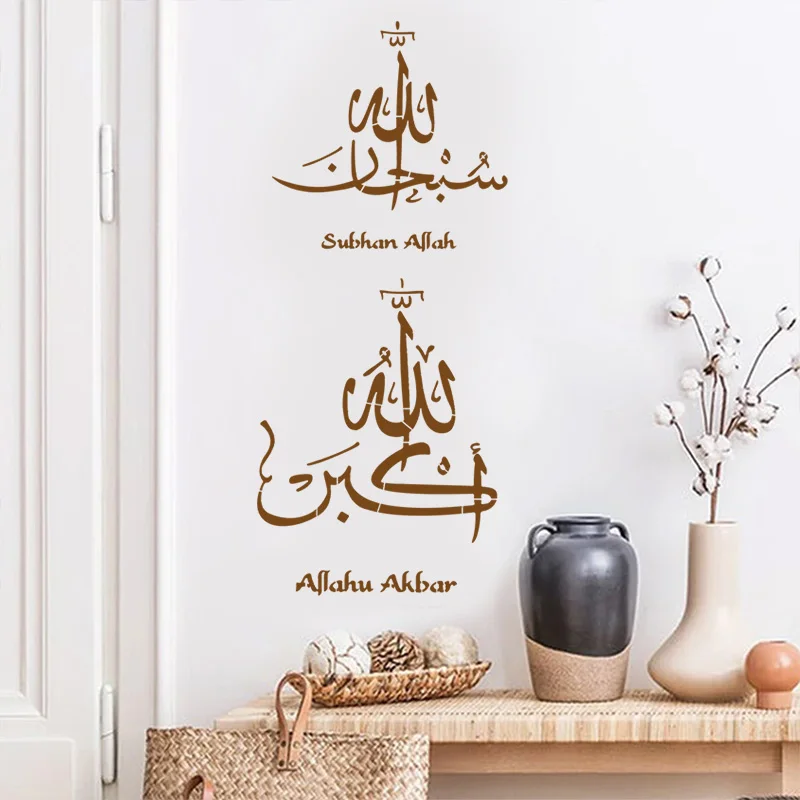 سُبْحَانَ اللّٰه
Subhan Allah
اللّٰهُ أَكْبَر
Allahu Akbar